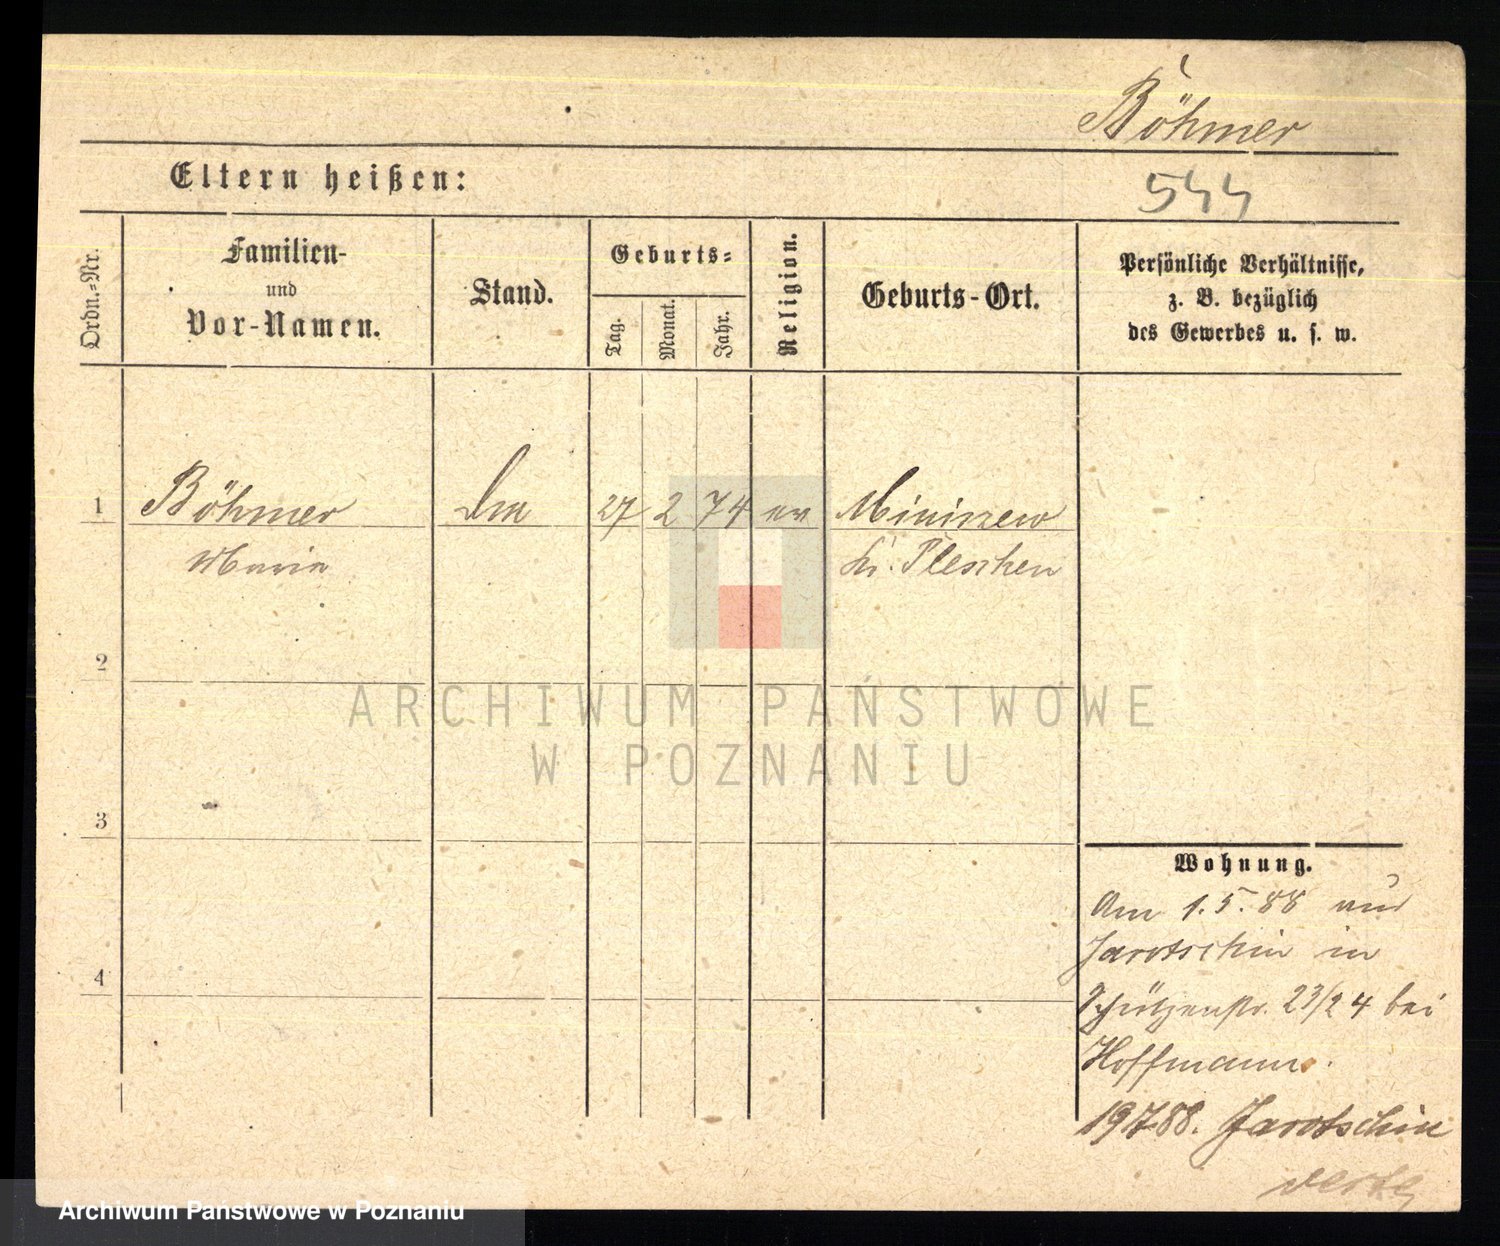 Böhmer
Eltern heißen:
544
Ordn.-Nr.
Familien-
und
Vor-Namen.
Stand.
Geburts-
Tag.
Monat.
Jahr.
Religion.
Geburts-Ort.
Persönliche Verhältnisse,
z. B. bezüglich
des Gewerbes u. s. w.
1 Böhmer 27 2 74 ev Miniszew
Maria Kr. Pleschen
2
ARCHIWUM PAŃSTWOWE
W POZNANIU
3
Wohnung.
Am 1.5.88 aus
Jarotschin in
4
Schützenstr. 23/24 bei
Hoffmann.
19788. Jarotschin
Archiwum Państwowe w Poznaniu